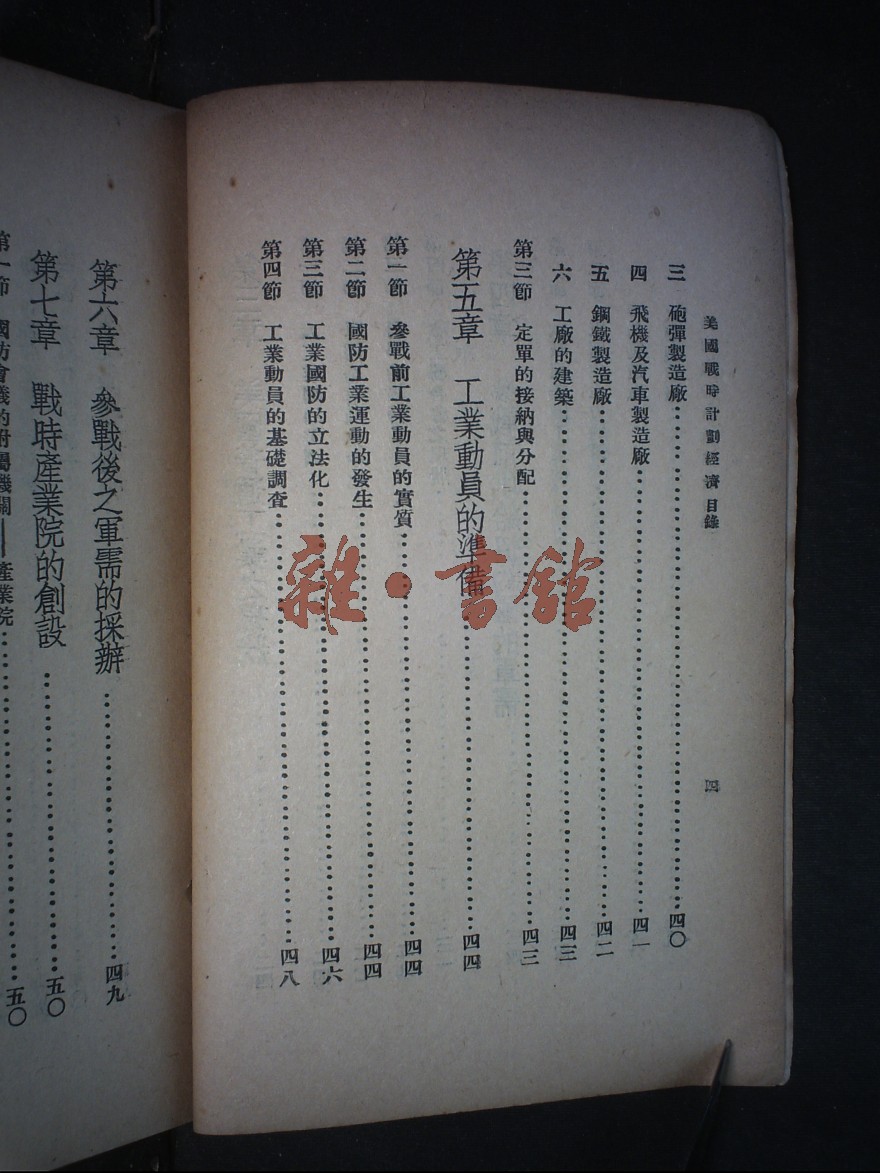 美國戰時計劃經濟 目錄
四
三 砲彈製造廠……四〇
四 飛機及汽車製造廠……四一
五 鋼鐵製造廠……四二
六 工廠的建築……四三
第三節 定單的接納與分配……四三
第五章 工業動員的準備……四四
第一節 參戰前工業動員的實質……四四
第二節 國防工業運動的發生……四四
第三節 工業國防的立法化……四六
第四節 工業動員的基礎調查……四八
第六章 參戰後之軍需的採辦……四九
第七章 戰時產業院的創設……五〇
第一節 國防會議的附屬機關——產業院……五〇
雜·書館